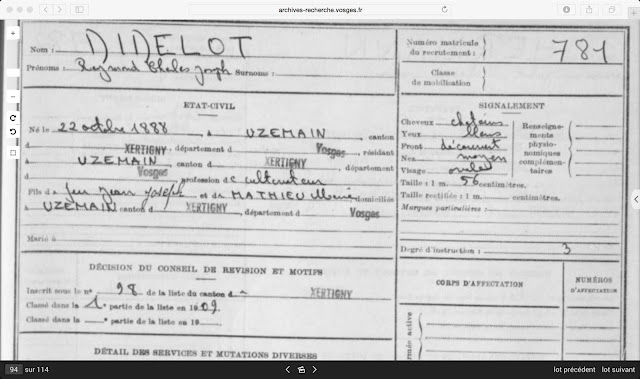 archives-recherche.vosges.fr
Nom : DIDELOT
Prénoms : Raymond Charles Joseph Surnoms :
Numéro matricule du recrutement : 781
Classe de mobilisation
ÉTAT-CIVIL
Né le 22 octobre 1888, à UZEMAIN, canton
d XERTIGNY, département d Vosges, résidant
à UZEMAIN, canton d XERTIGNY, département
d Vosges, profession de cultivateur
Fils d feu Jean Joseph et d MATHIEU Marie domiciliés
à UZEMAIN canton d XERTIGNY, département d Vosges
Marié à
SIGNALEMENT
Cheveux châtains
Yeux bleus
Front découvert
Nez moyen
Visage ovale
Renseignements physionomiques complémentaires
Taille : 1 m. 56 centimètres.
Taille rectifiée : 1 m. centimètres.
Marques particulières :
Degré d'instruction : 3
DÉCISION DU CONSEIL DE REVISION ET MOTIFS
Inscrit sous le n° 98 de la liste du canton d XERTIGNY
Classé dans la 1e partie de la liste en 1909
Classé dans la e partie de la liste en 19
CORPS D'AFFECTATION
NUMÉROS D'AFFECTATION
Armée active
DÉTAIL DES SERVICES ET MUTATIONS DIVERSES
94 sur 114
lot précédent lot suivant